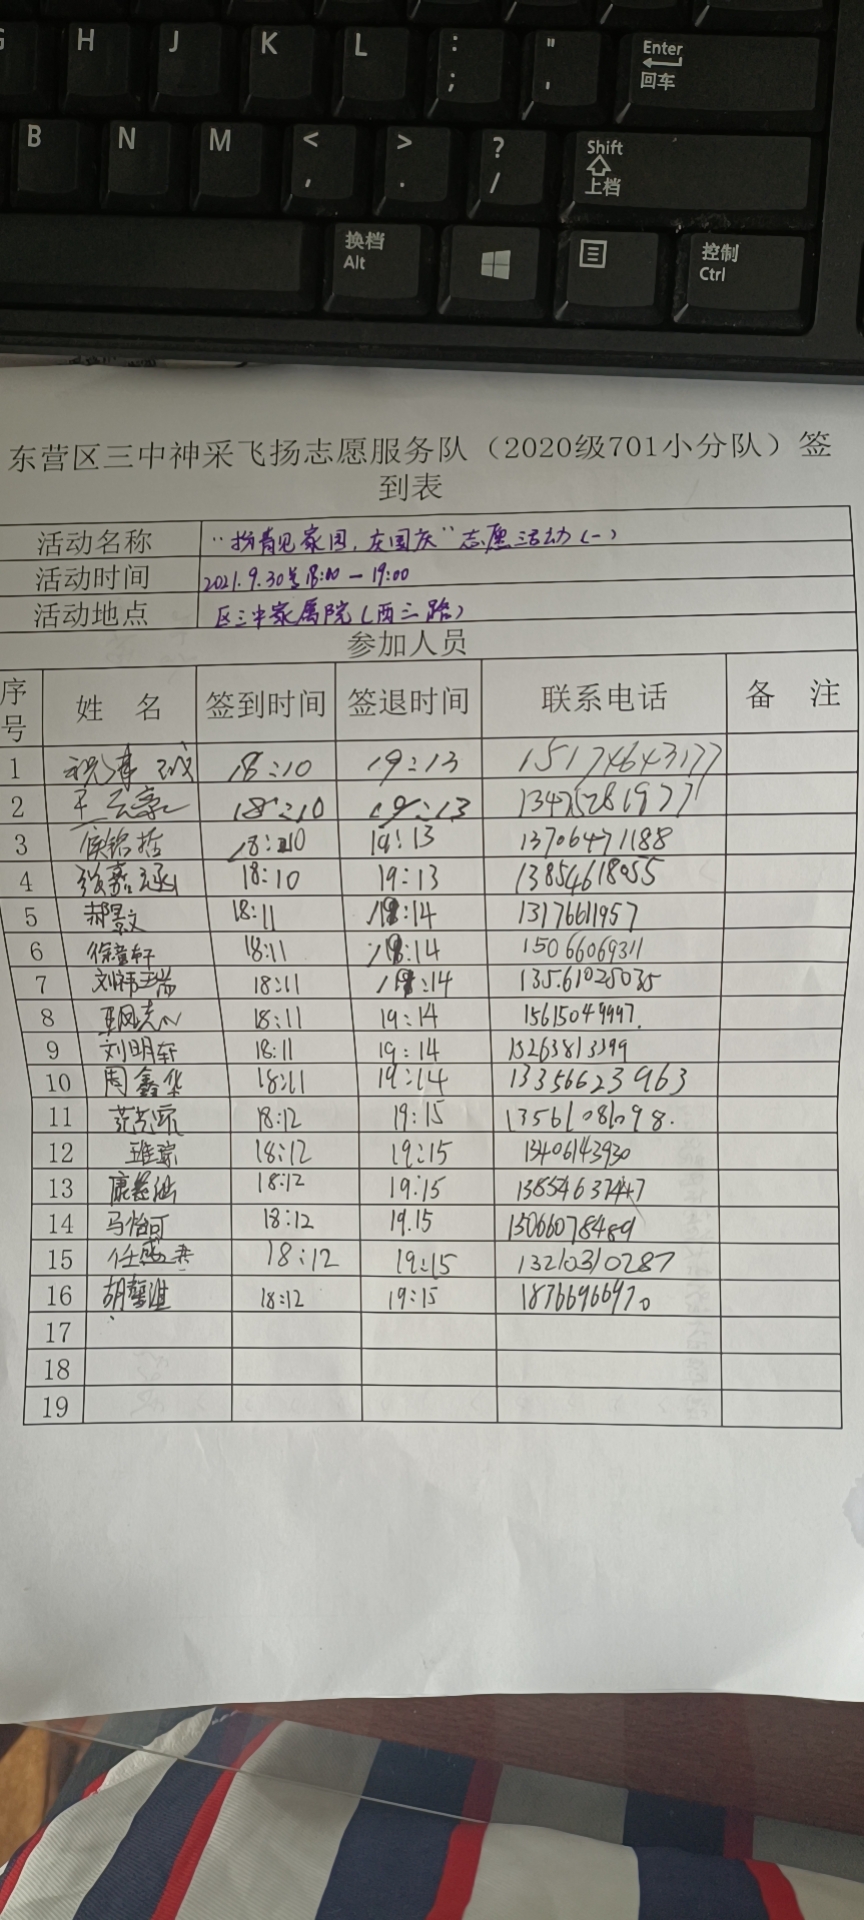 G H J K L : ; " ' Enter 回车
B N M < , > . ? / Shift 上档
换档 Alt 控制 Ctrl
东营区三中神采飞扬志愿服务队（2020级701小分队）签
到表
活动名称 志愿活动(一)
活动时间 2021.9.30 18:00-19:00
活动地点 区三中家属院(西三路)
参加人员
序号 姓 名 签到时间 签退时间 联系电话 备 注
1 18:10 19:13 15174643177
2 18:10 19:13
3 侯铭哲 18:10 19:13 13706471188
4 张嘉涵 18:10 19:13 13854618055
5 郝景文 18:11 19:14 13176611957
6 徐童轩 18:11 19:14 15066069311
7 刘祎 18:11 19:14 13561025035
8 18:11 19:14 15615049997.
9 刘明轩 18:11 19:14 15263813399
10 周鑫华 18:11 19:14 13356623963
11 18:12 19:15 13561081098.
12 18:12 19:15 13406143930
13 18:12 19:15 13854637447
14 马怡可 18:12 19.15 15066078489
15 18:12 19:15 13210310287
16 18:12 19:15 18766966970
17
18
19